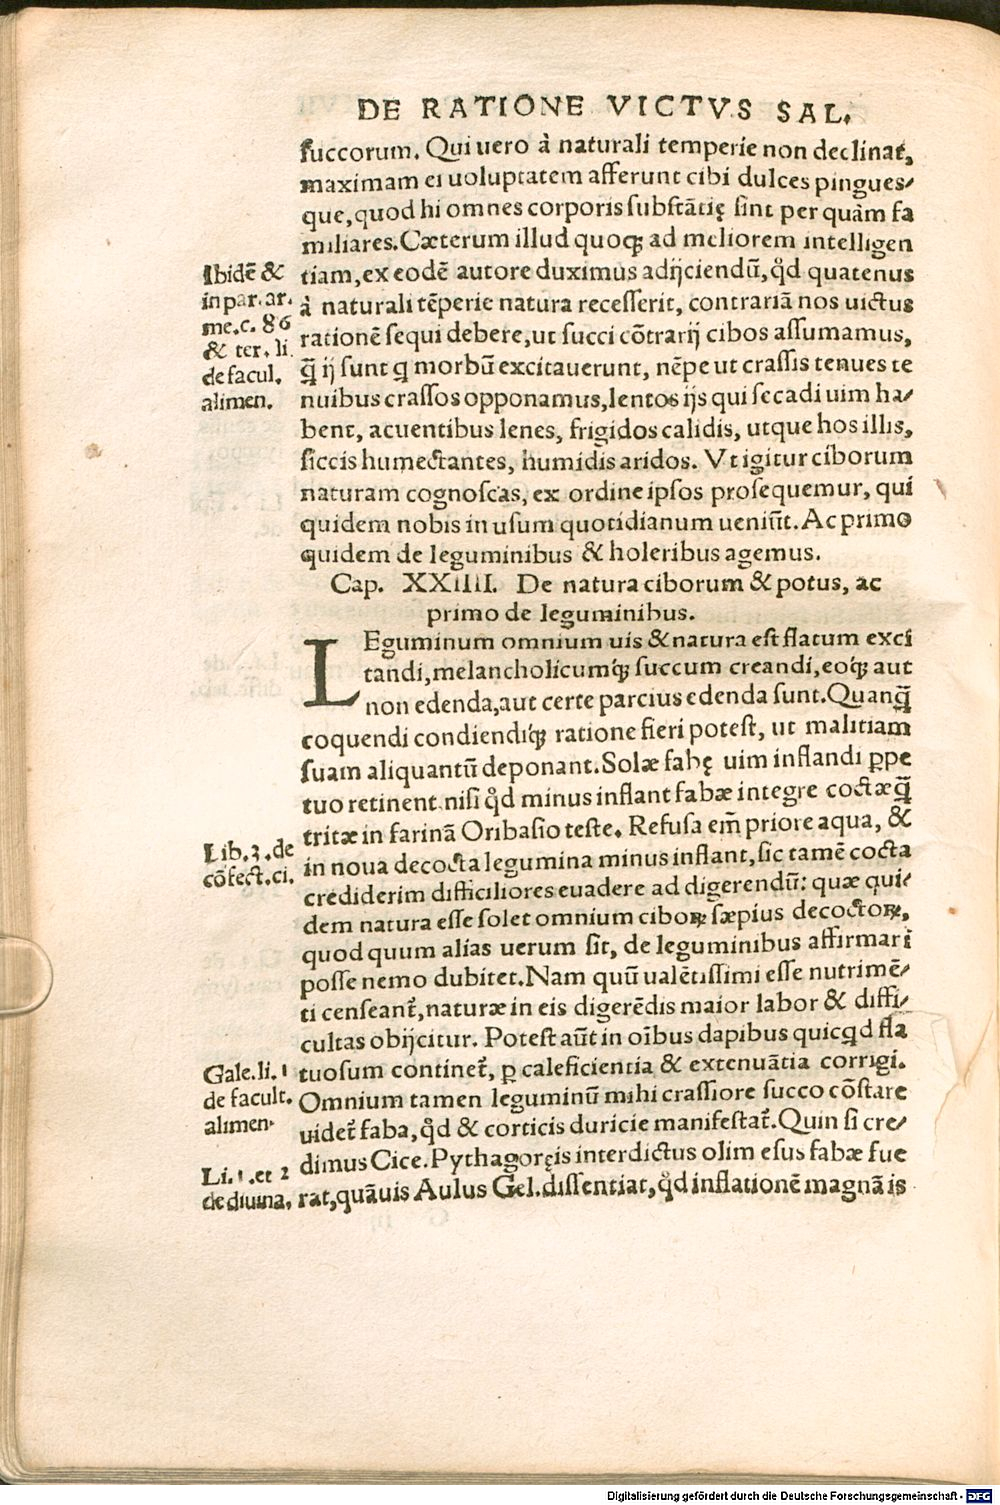 DE RATIONE VICTVS SAL.
ſuccorum. Qui uero à naturali temperie non declinat,
maximam ei uoluptatem afferunt cibi dulces pingueſ/
que, quod hi omnes corporis ſubſtãtię ſint per quàm fa
miliares. Cæterum illud quoqꝫ ad meliorem intelligen
tiam, ex eodẽ autore duximus adijciendũ, qd̓ quatenus
à naturali tẽperie natura receſſerit, contrariã nos uictus
rationẽ ſequi debere, ut ſucci cõtrarij cibos aſſumamus,
q̃ ij ſunt q morbũ excitauerunt, nẽpe ut craſſis tenues te
nuibus craſſos opponamus, lentos ijs qui ſecãdi uim ha/
bent, acuentibus lenes, frigidos calidis, utque hos illis,
ſiccis humectantes, humidis aridos. Vt igitur ciborum
naturam cognoſcas, ex ordine ipſos proſequemur, qui
quidem nobis in uſum quotidianum ueniũt. Ac primo
quidem de leguminibus & holeribus agemus.
Ibidẽ &
in par. ar.
me. c. 86
& ter. li.
de facul.
alimen.
Cap. XXIIII. De natura ciborum & potus, ac
primo de leguminibus.
LEguminum omnium uis & natura eſt flatum exci
tandi, melancholicumqꝫ ſuccum creandi, eoqꝫ aut
non edenda, aut certe parcius edenda ſunt. Quanq̃
coquendi condiendiqꝫ ratione fieri poteſt, ut malitiam
ſuam aliquantũ deponant. Solæ fabę uim inflandi ꝑpe
tuo retinent niſi qd̓ minus inflant fabæ integre coctæ q̃
tritæ in farinã Oribaſio teſte. Refuſa em̃ priore aqua, &
in noua decocta legumina minus inflant, ſic tamẽ cocta
crediderim difficiliores euadere ad digerendũ: quæ qui/
dem natura eſſe ſolet omnium ciboꝝ ſæpius decoctoꝝ,
quod quum alias uerum ſit, de leguminibus affirmari
poſſe nemo dubitet. Nam quũ ualẽtiſſimi eſſe nutrimẽ/
ti cenſeant᷑, naturæ in eis digerẽdis maior labor & diffi/
cultas obijcitur. Poteſt aũt in oĩbus dapibus quicqd fla
tuoſum continet᷑, ꝑ caleficientia & extenuãtia corrigi.
Omnium tamen leguminũ mihi craſſiore ſucco cõſtare
uidet᷑ faba, qd̓ & corticis duricie manifeſtat᷑. Quin ſi cre/
dimus Cice. Pythagoręis interdictus olim eſus fabæ fue
rat, quãuis Aulus Gel. diſſentiat, qd̓ inflationẽ magnã is
Lib. 3. de
cõfect. ci.
Gale. li. 1
de facult.
alimen.
Li. 1. et 2
de diuina.
Digitalisierung gefördert durch die Deutsche Forschungsgemeinschaft - DFG